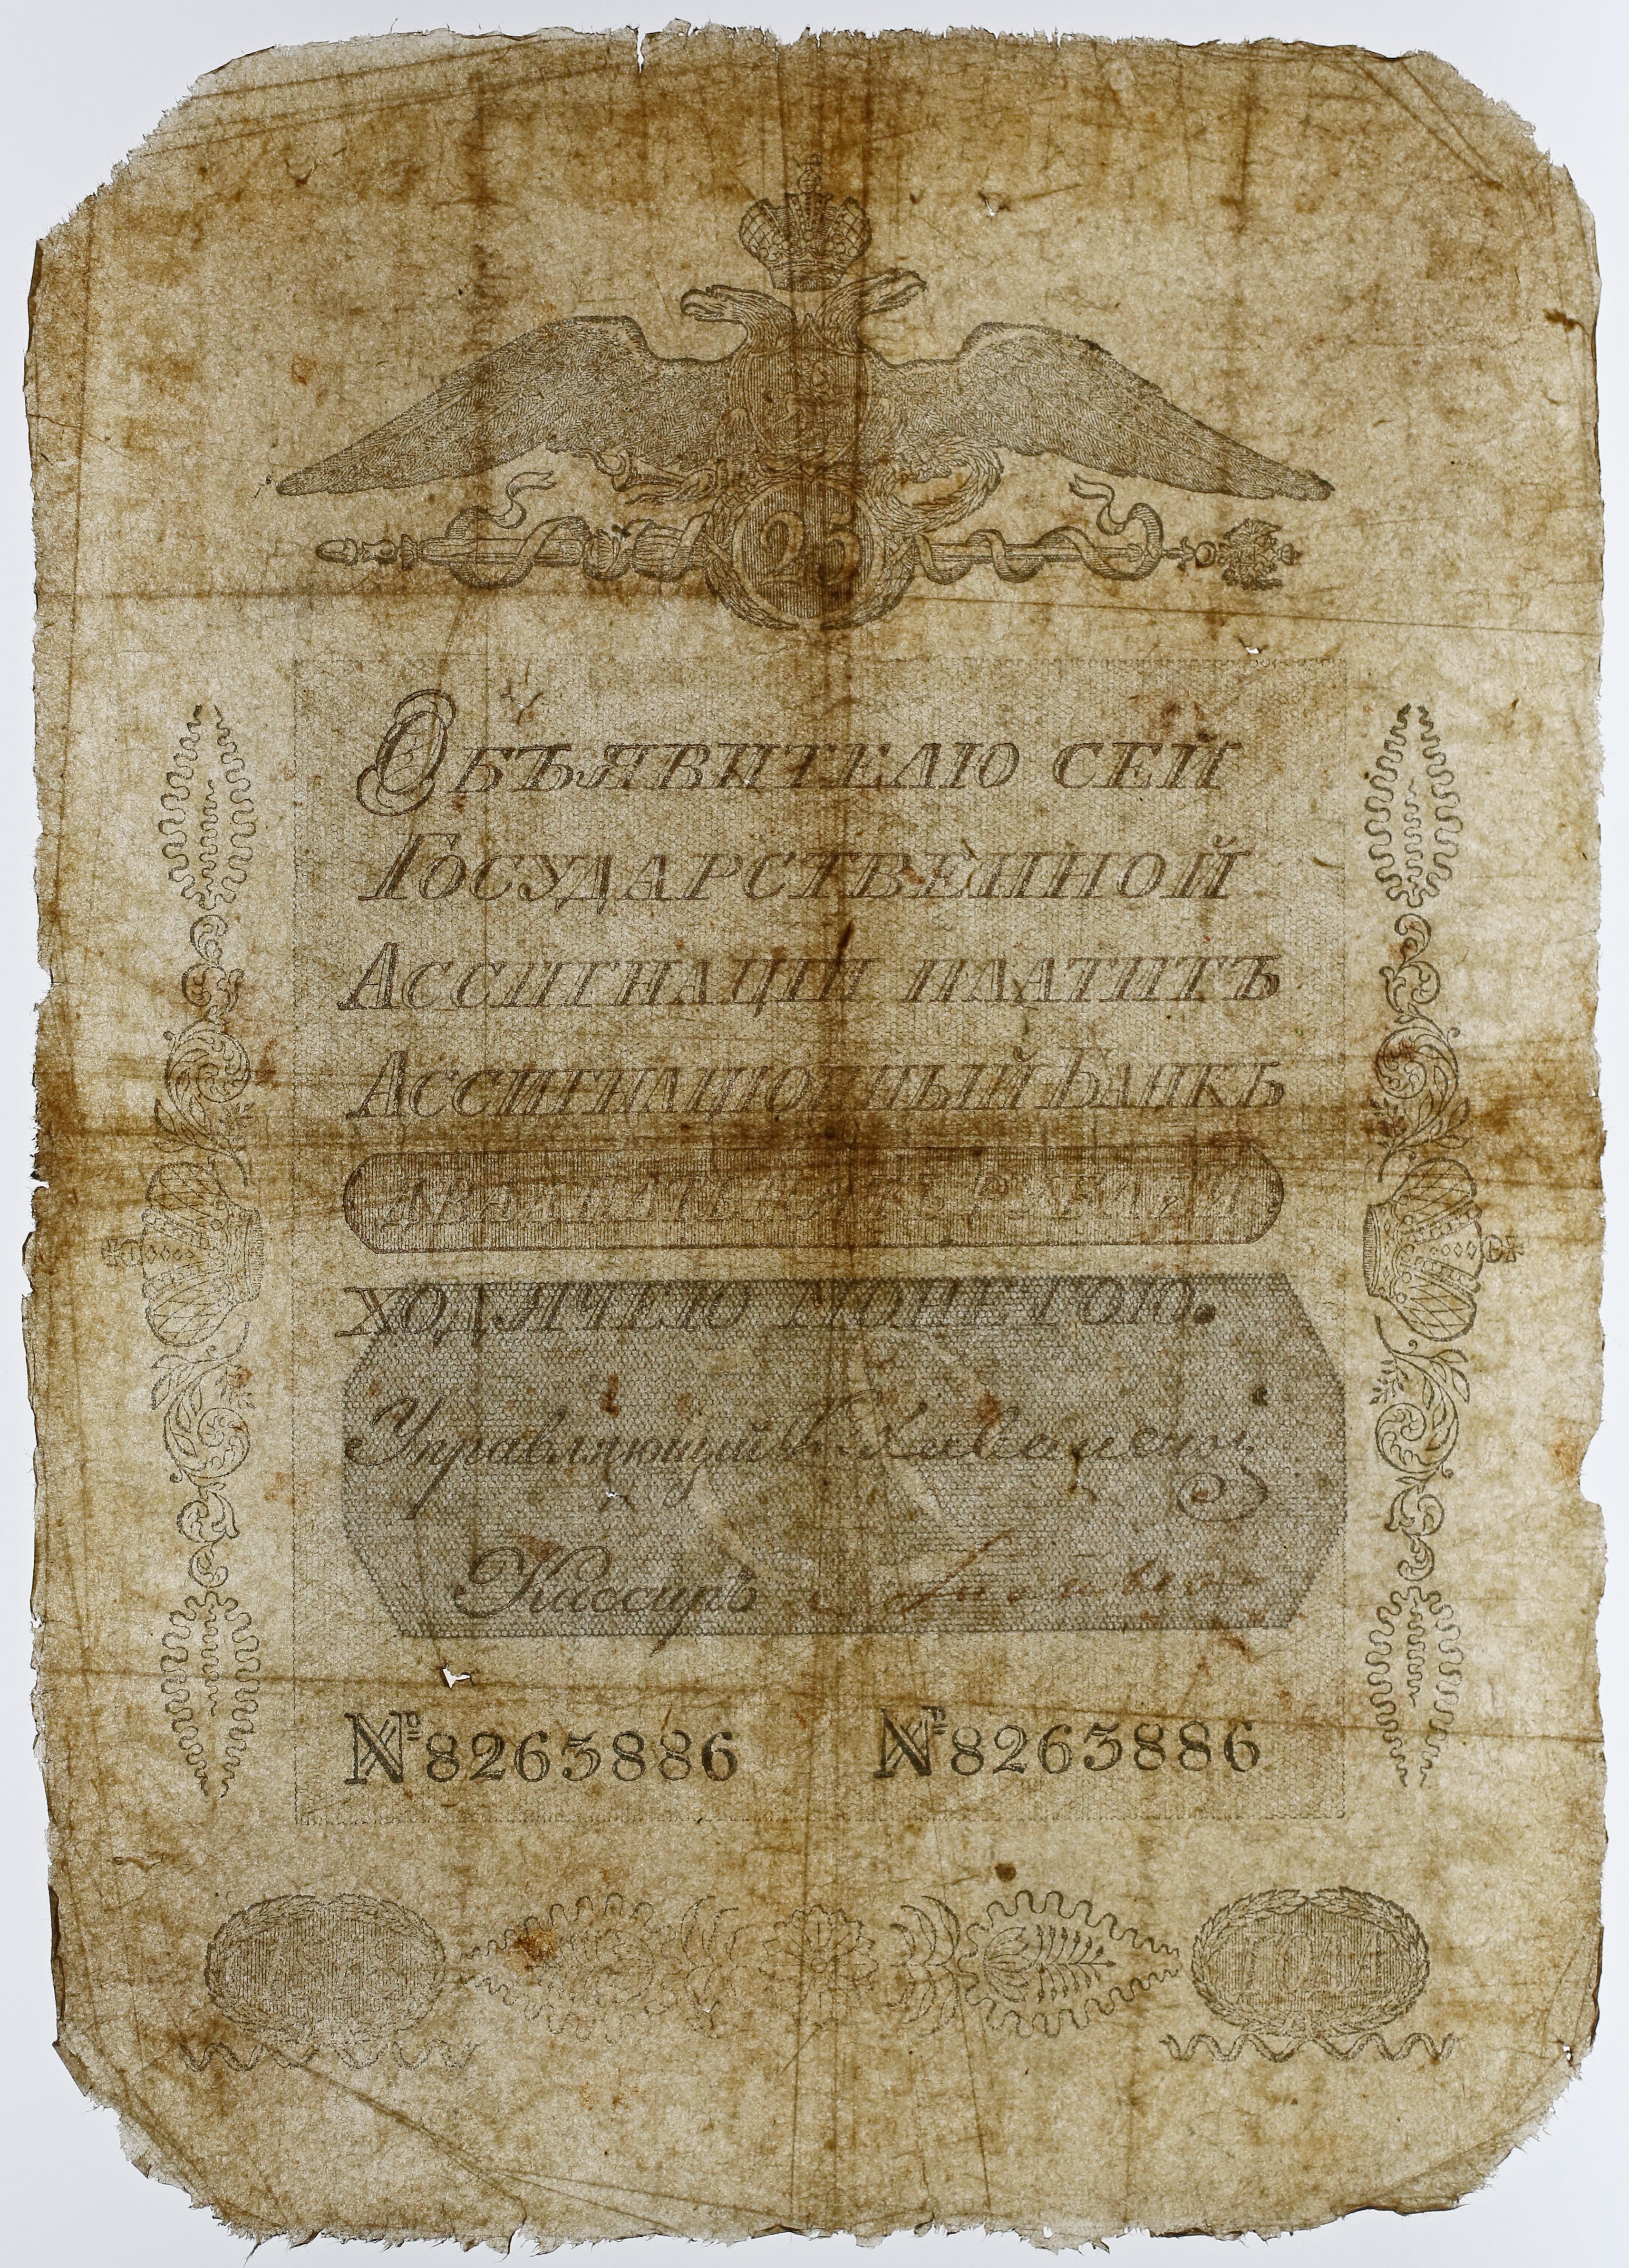 25
Объявителю сей
Государственной
Ассигнаціи платитъ
Ассигнаціонный Банкъ
двадцать пять рублей
ходячею монетою.
Управляющій
Кассиръ
№ 8263886 № 8263886
года